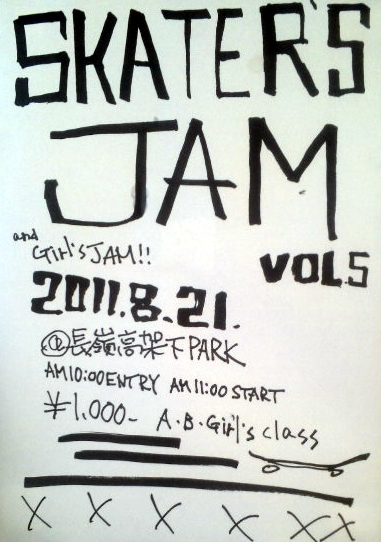 SKATER'S
JAM
and
Girl's JAM!!
VOL.5
2011.8.21.
@長嶺高架下PARK
AM10:00ENTRY AM11:00 START
¥1,000- A.B.Girl's class
X X X X XX